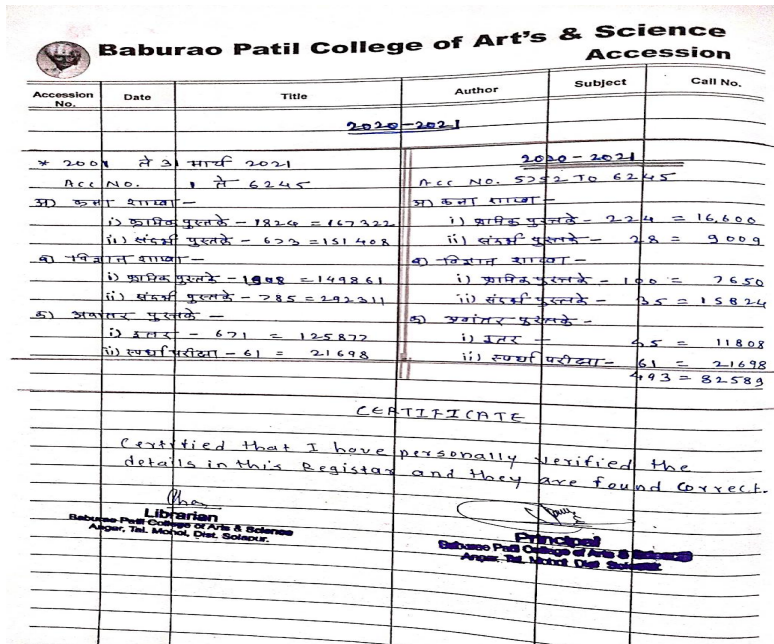 Baburao Patil College of Art's & Science
Accession
Accession No.
Date
Title
Author
Subject
Call No.
2020-2021
* 2001 ते 31 मार्च 2021
Acc No. 1 ते 6245
अ) कला शाखा -
i) क्रमिक पुस्तके - 1824 = 167322
ii) संदर्भ पुस्तके - 673 = 151408
ब) विज्ञान शाखा -
i) क्रमिक पुस्तके - = 149861
ii) संदर्भ पुस्तके - 785 = 292311
क) अवांतर पुस्तके -
i) इतर - 671 = 125877
ii) स्पर्धा परीक्षा - 61 = 21698
2020-2021
Acc No. 5752 TO 6245
अ) कला शाखा -
i) क्रमिक पुस्तके - 224 = 16,600
ii) संदर्भ पुस्तके - 28 = 9009
ब) विज्ञान शाखा -
i) क्रमिक पुस्तके - 100 = 7650
ii) संदर्भ पुस्तके - 35 = 15824
क) अवांतर पुस्तके -
i) इतर - 45 = 11808
ii) स्पर्धा परीक्षा - 61 = 21698
493 = 82589
CERTIFICATE
Certified that I have personally verified the
details in this Registar and they are found correct.
Librarian
Baburao Patil College of Arts & Science
Angar, Tal. Mohol, Dist. Solapur.
Principal
Baburao Patil College of Arts & Science
Angar, Tal. Mohol Dist Solapur.